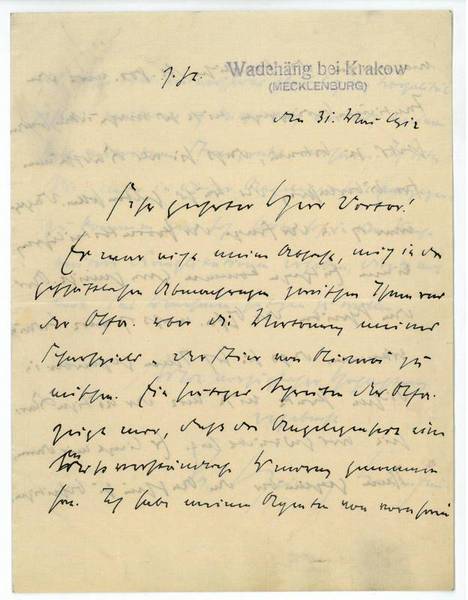 z. Zt. Wadehäng bei Krakow
(MECKLENBURG)
den 31. Mai 1912
Sehr geehrter Herr Doctor!
Es war nicht meine Absicht, mich in die
geschäftlichen Abmachungen zwischen Ihnen und
der über die Vertonung meines
Schauspiels „Der Stier von Olivera" zu
mischen. Ein heutiges Schreiben der
zeigt mir, dass die Angelegenheit eine
missverständliche Wendung genommen
hat. Ich habe meinen Agenten von vornherein